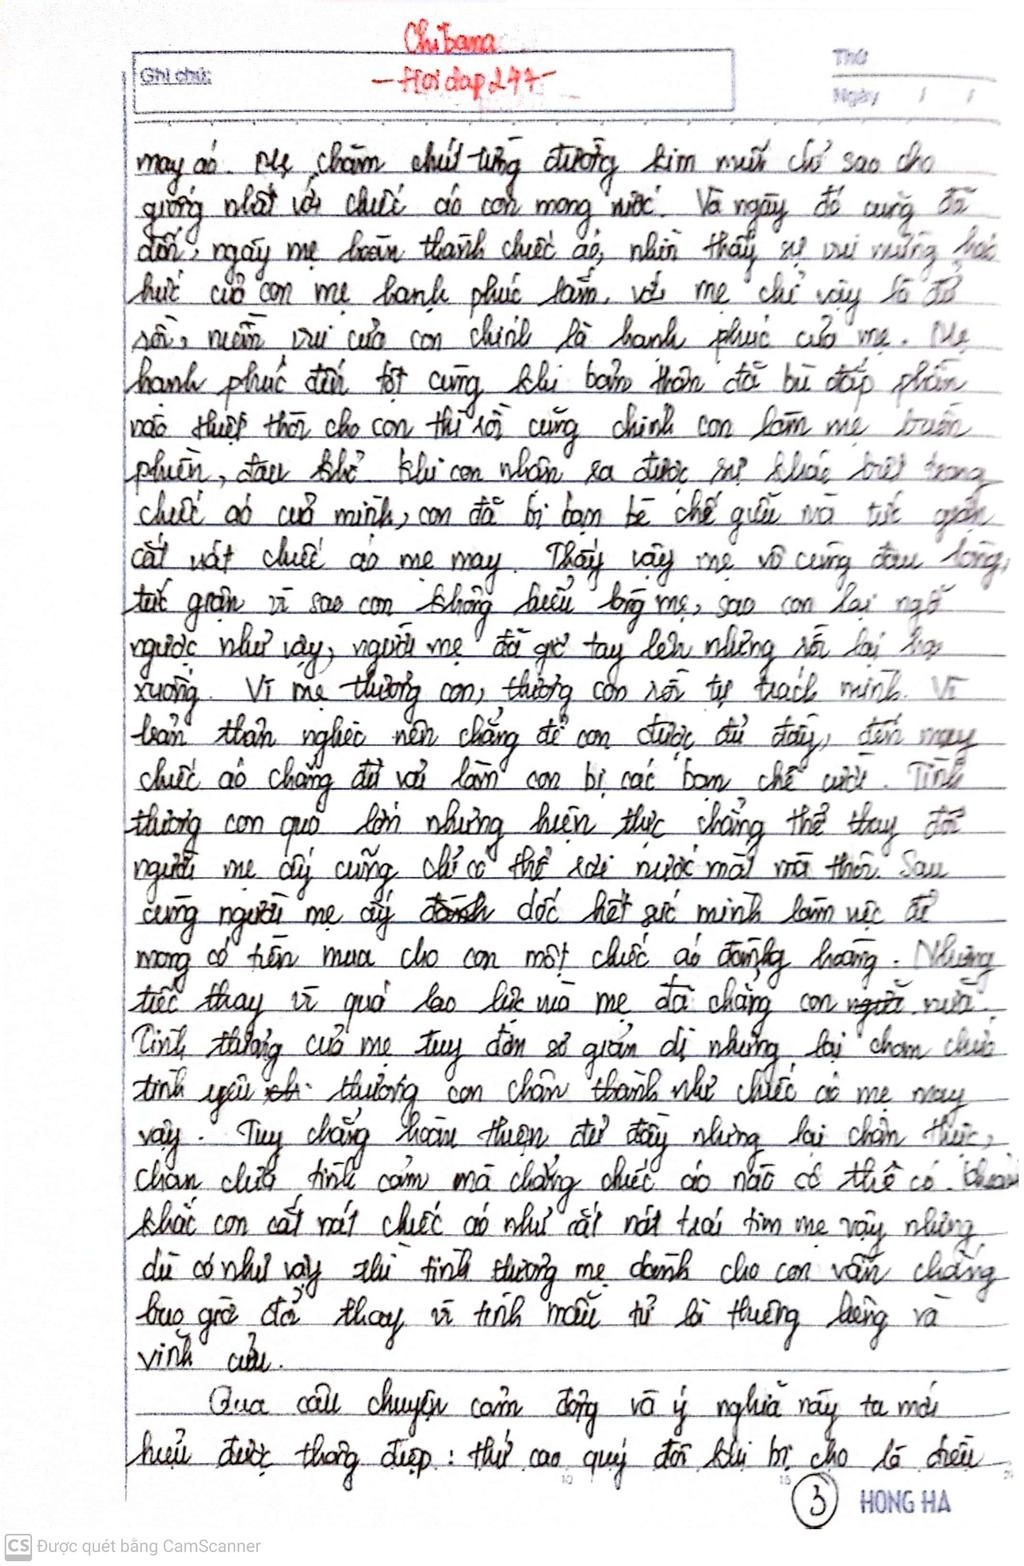 Chibana
Ghi chú:
- Hoidap247 -
Thứ
Ngày / /
may áo. Mẹ chăm chút từng đường kim mũi chỉ sao cho
giống nhất với chiếc áo con mong ước. Và ngày đó cũng đã
đến, ngày mẹ hoàn thành chiếc áo, nhìn thấy sự vui mừng háo
hức của con mẹ hạnh phúc lắm, với mẹ chỉ vậy là đủ
rồi, niềm vui của con chính là hạnh phúc của mẹ. Mẹ
hạnh phúc đến tột cùng khi bản thân đã bù đắp phần
nào thiệt thòi cho con thì rồi cũng chính con làm mẹ buồn
phiền, đau khổ. Khi con nhận ra được sự khác biệt trong
chiếc áo của mình, con đã bị bạn bè chế giễu và tức giận
cắt nát chiếc áo mẹ may. Thấy vậy mẹ vô cùng đau lòng,
tức giận vì sao con không hiểu lòng mẹ, sao con lại ngỗ
ngược như vậy, người mẹ đã giơ tay lên nhưng rồi lại hạ
xuống. Vì mẹ thương con, thương con rồi tự trách mình. Vì
bản thân nghèo nên chẳng để con được đủ đầy, đến may
chiếc áo chẳng đủ vải làm con bị các bạn chê cười. Tình
thương con quá lớn nhưng hiện thực chẳng thể thay đổi
người mẹ ấy cũng chỉ có thể rơi nước mắt mà thôi. Sau
cùng người mẹ ấy dành dốc hết sức mình làm việc để
mong có tiền mua cho con một chiếc áo đàng hoàng. Nhưng
tiếc thay vì quá lao lực mà mẹ đã chẳng còn nữa.
Tình thương của mẹ tuy đơn sơ giản dị nhưng lại chan chứa
tình yêu thương con chân thành như chiếc áo mẹ may
vậy. Tuy chẳng hoàn thiện đủ đầy nhưng lại chân thực,
chan chứa tình cảm mà chẳng chiếc áo nào có thể có. Khoảnh
khắc con cắt nát chiếc áo như cắt nát trái tim mẹ vậy nhưng
dù có như vậy thì tình thương mẹ dành cho con vẫn chẳng
bao giờ đổi thay vì tình mẫu tử là thiêng liêng và
vĩnh cửu.
Qua câu chuyện cảm động và ý nghĩa này ta mới
hiểu được thông điệp: thứ cao quý đôi khi bị cho là điều
10 15
3 HONG HA
CS Được quét bằng CamScanner